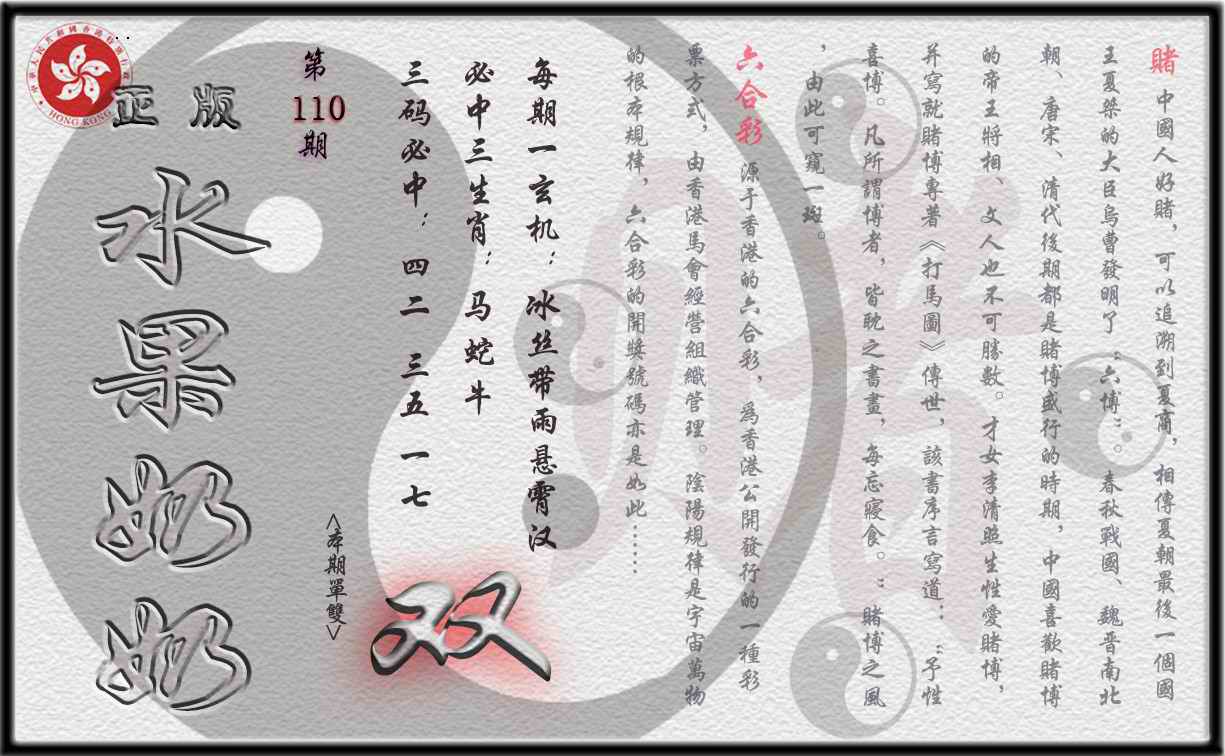 賭 中國人好賭，可以追溯到夏商，相傳夏朝最後一個國
王夏桀的大臣烏曹發明了“六博”。春秋戰國、魏晋南北
朝、唐宋、清代後期都是賭博盛行的時期，中國喜歡賭博
的帝王將相、文人也不可勝數。才女李清照生性愛賭博，
并寫就賭博專著《打馬圖》傳世，該書序言寫道：“予性
喜博。凡所謂博者，皆耽之書畫，每忘寢食。”賭博之風
，由此可窺一斑。
六合彩 源于香港的六合彩，為香港公開發行的一種彩
票方式，由香港馬會經營組織管理。陰陽規律是宇宙萬物
的根本規律，六合彩的開獎號碼亦是如此……
每期一玄机：冰丝带雨悬霄汉
必中三生肖：马蛇牛
三码必中：四二 三五 一七
双
<本期單雙>
第
110
期
正版
水果奶奶
中華人民共和國香港特別行政區
HONG KONG